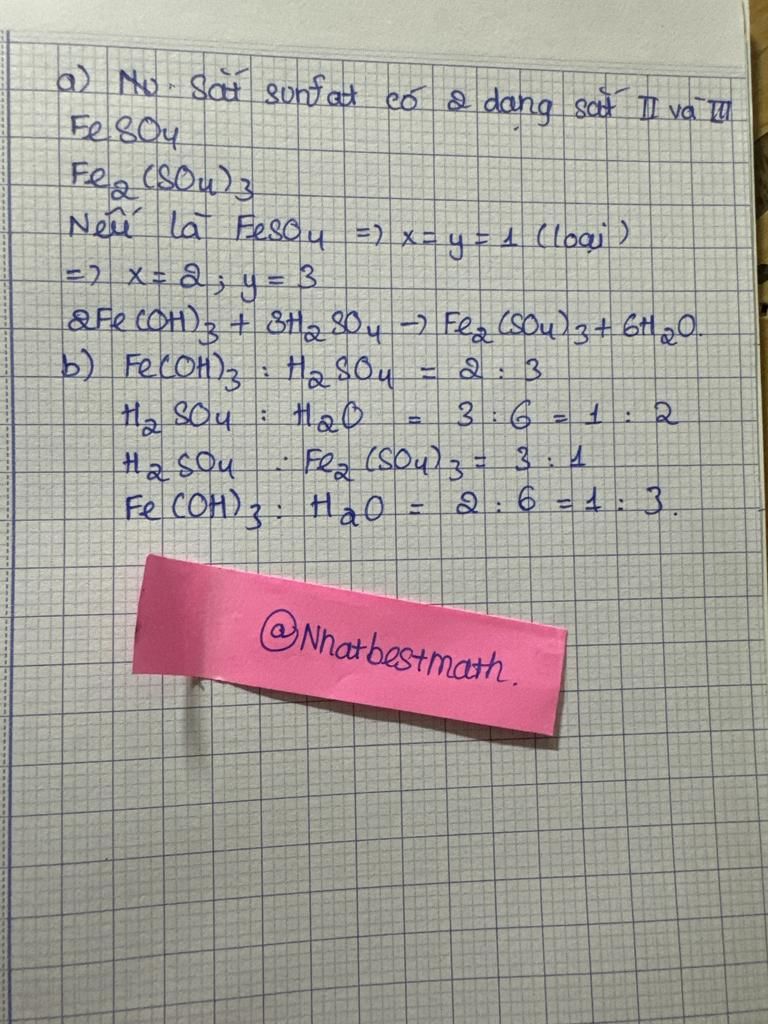 a) Muối sắt sunfat có 2 dạng sắt II và III
FeSO4
Fe2(SO4)3
Nếu là FeSO4 => x=y=1 (loại)
=> x=2; y=3
2Fe(OH)3 + 3H2SO4 -> Fe2(SO4)3 + 6H2O.
b) Fe(OH)3 : H2SO4 = 2 : 3
H2SO4 : H2O = 3 : 6 = 1 : 2
H2SO4 : Fe2(SO4)3 = 3 : 1
Fe(OH)3 : H2O = 2 : 6 = 1 : 3.
@Nhatbestmath.